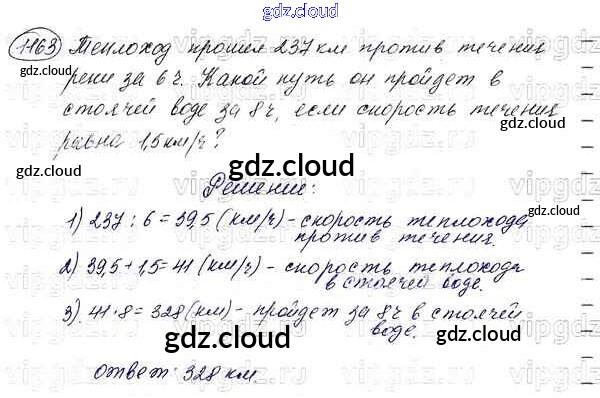 gdz.cloud
1163 Теплоход прошел 237 км против течения
gdz.cloud gdz.cloud
реки за 6 ч. Какой путь он пройдет в
стоячей воде за 8 ч, если скорость течения
равна 1,5 км/ч?
gdz.cloud
gdz.cloud gdz.cloud
Решение:
1) 237 : 6 = 39,5 (км/ч) - скорость теплохода
против течения.
gdz.cloud
2) 39,5 + 1,5 = 41 (км/ч) - скорость теплохода
в стоячей воде.
3) 41 · 8 = 328 (км) - пройдет за 8 ч в стоячей
воде.
gdz.cloud gdz.cloud
Ответ: 328 км.
gdz.cloud
vipgdz